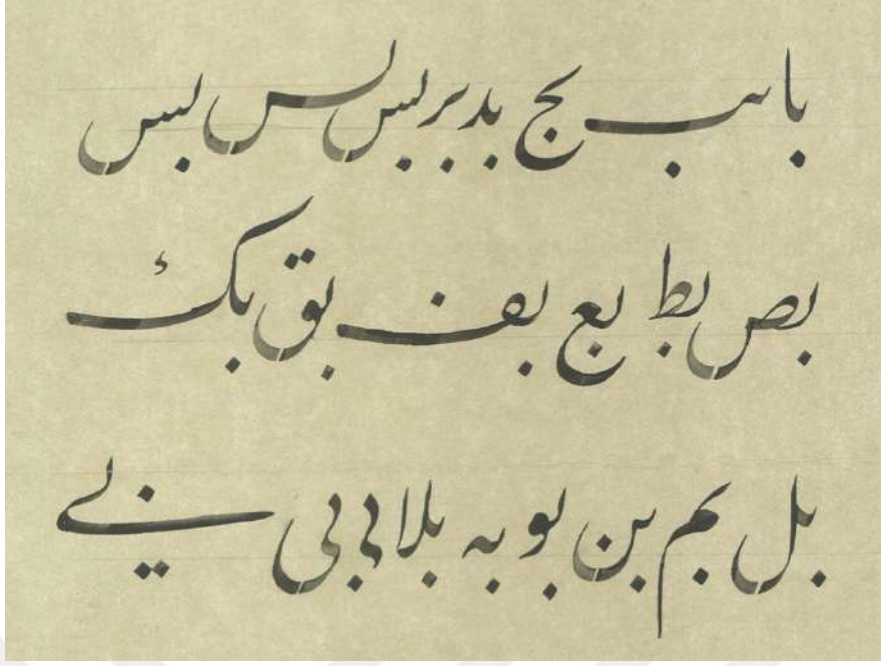 با بب بج بد بر بس بس بس
بص بط بع بف بق بك
بل بم بن بو به بلا بى بے